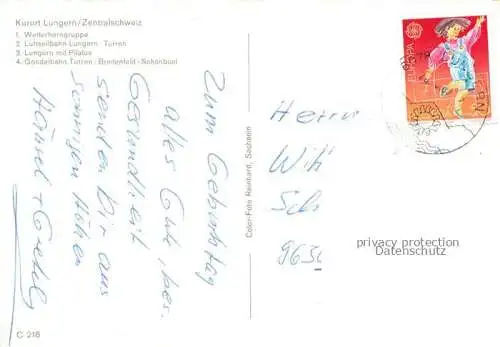 Kurort Lungern/Zentralschweiz
1. Wetterhorngruppe
2. Luftseilbahn Lungern - Turren
3. Lungern mit Pilatus
4. Gondelbahn Turren - Breitenfeld - Schönbüel
Zum Geburtstag
alles Gute, bes.
Gesundheit
senden Dir aus
sonnigen Höhen
Hänsel + Gretel
C 218
Color-Foto Reinhard, Sachseln
EUROPA
Herrn
Wili
Sch
9630
privacy protection
Datenschutz